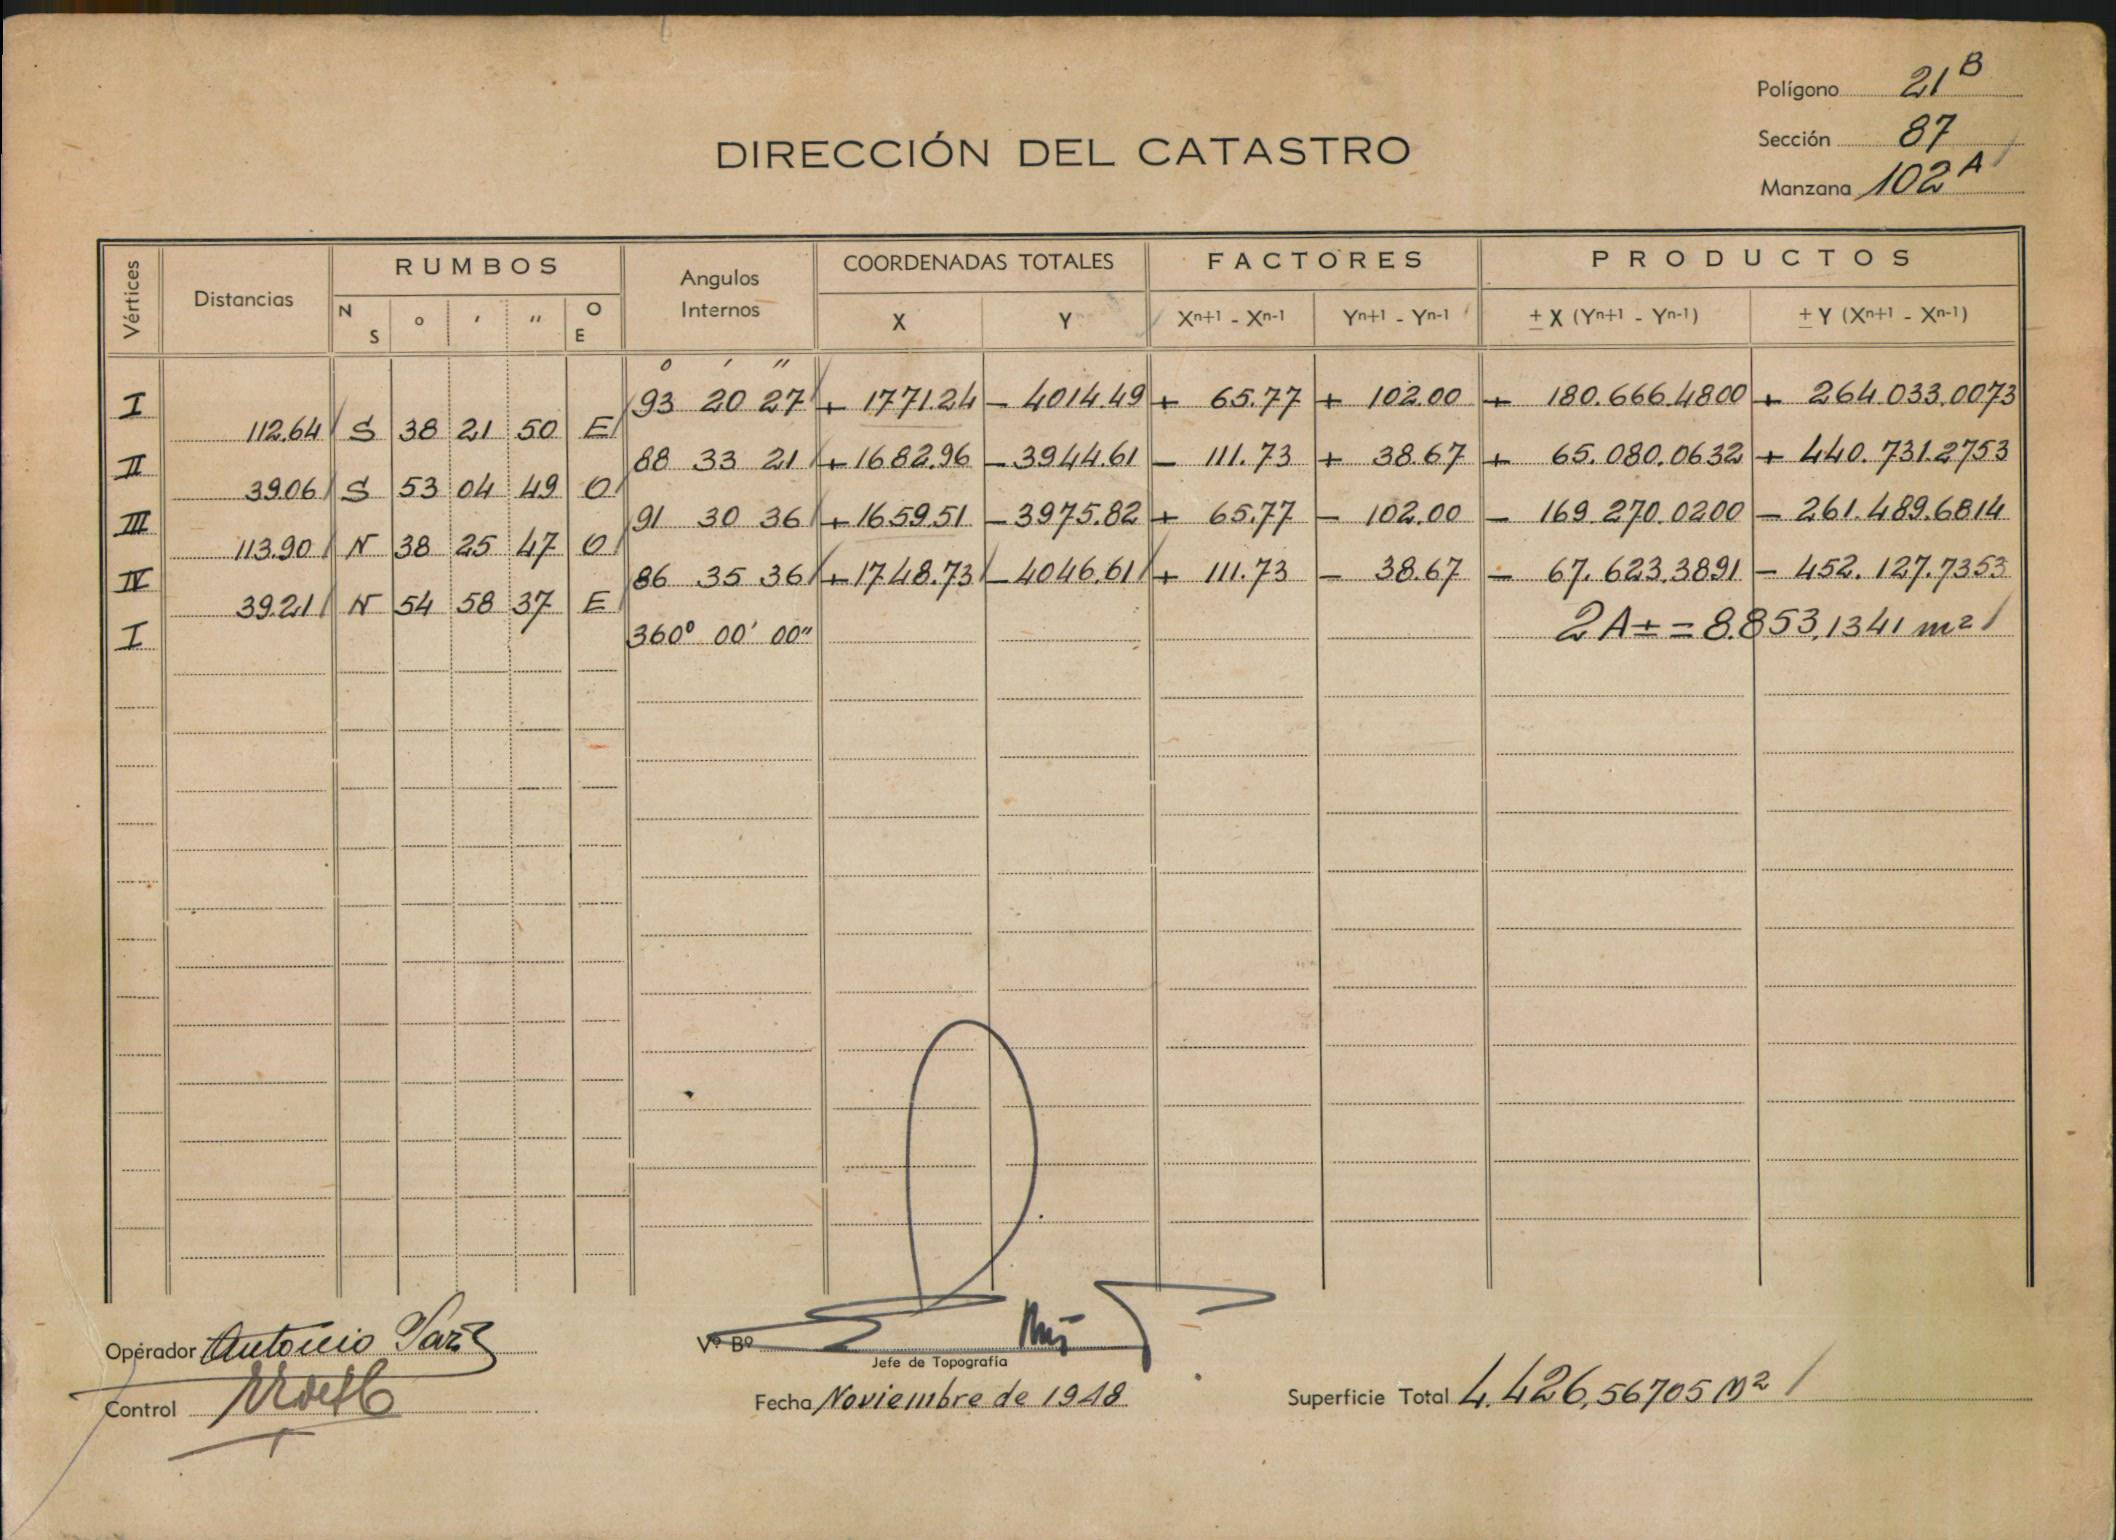 Polígono 21 B
Sección 87
Manzana 102 A
DIRECCIÓN DEL CATASTRO
Vértices Distancias RUMBOS Angulos Internos COORDENADAS TOTALES FACTORES PRODUCTOS
N S ° ' " O E X Y Xn+1 - Xn-1 Yn+1 - Yn-1 ± X (Yn+1 - Yn-1) ± Y (Xn+1 - Xn-1)
° ' "
I 93 20 27 + 1771.24 - 4014.49 + 65.77 + 102.00 + 180.666.4800 + 264.033.0073
112.64 S 38 21 50 E
II 88 33 21 + 1682.96 - 3944.61 - 111.73 + 38.67 + 65.080.0632 + 440.731.2753
39.06 S 53 04 49 O
III 91 30 36 + 1659.51 - 3975.82 + 65.77 - 102.00 - 169.270.0200 - 261.489.6814
113.90 N 38 25 47 O
IV 86 35 36 + 1748.73 - 4046.61 + 111.73 - 38.67 - 67.623.3891 - 452.127.7353
39.21 N 54 58 37 E
I 360° 00' 00" 2A± = 8.853,1341 m2
Operador Antonio
Vº Bº
Jefe de Topografía
Control
Fecha Noviembre de 1948
Superficie Total 4.426,56705 M2